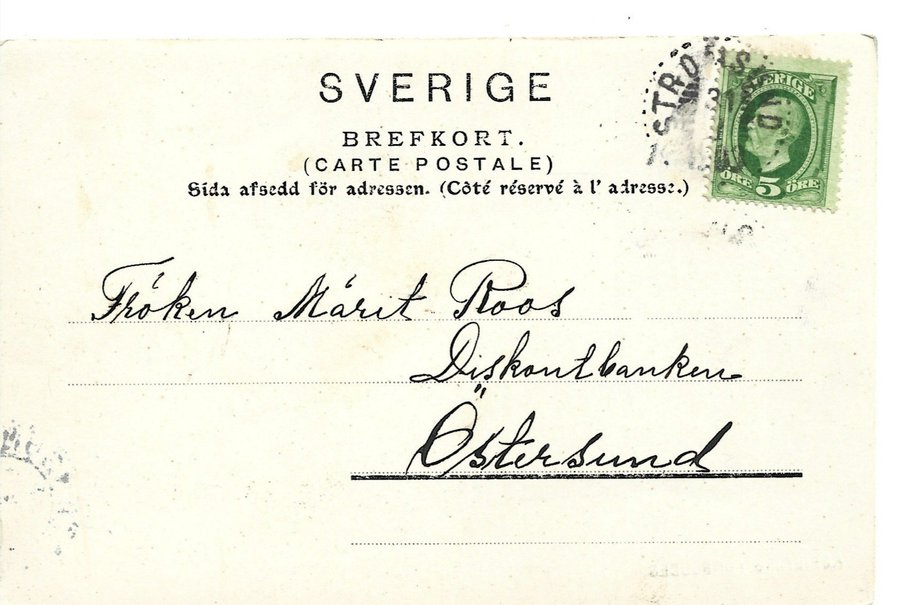 SVERIGE
BREFKORT.
(CARTE POSTALE)
Sida afsedd för adressen. (Côté réservé à l' adresse.)
SVERIGE
ÖRE 5 ÖRE
Fröken Märit Roos
Diskontbanken
Östersund